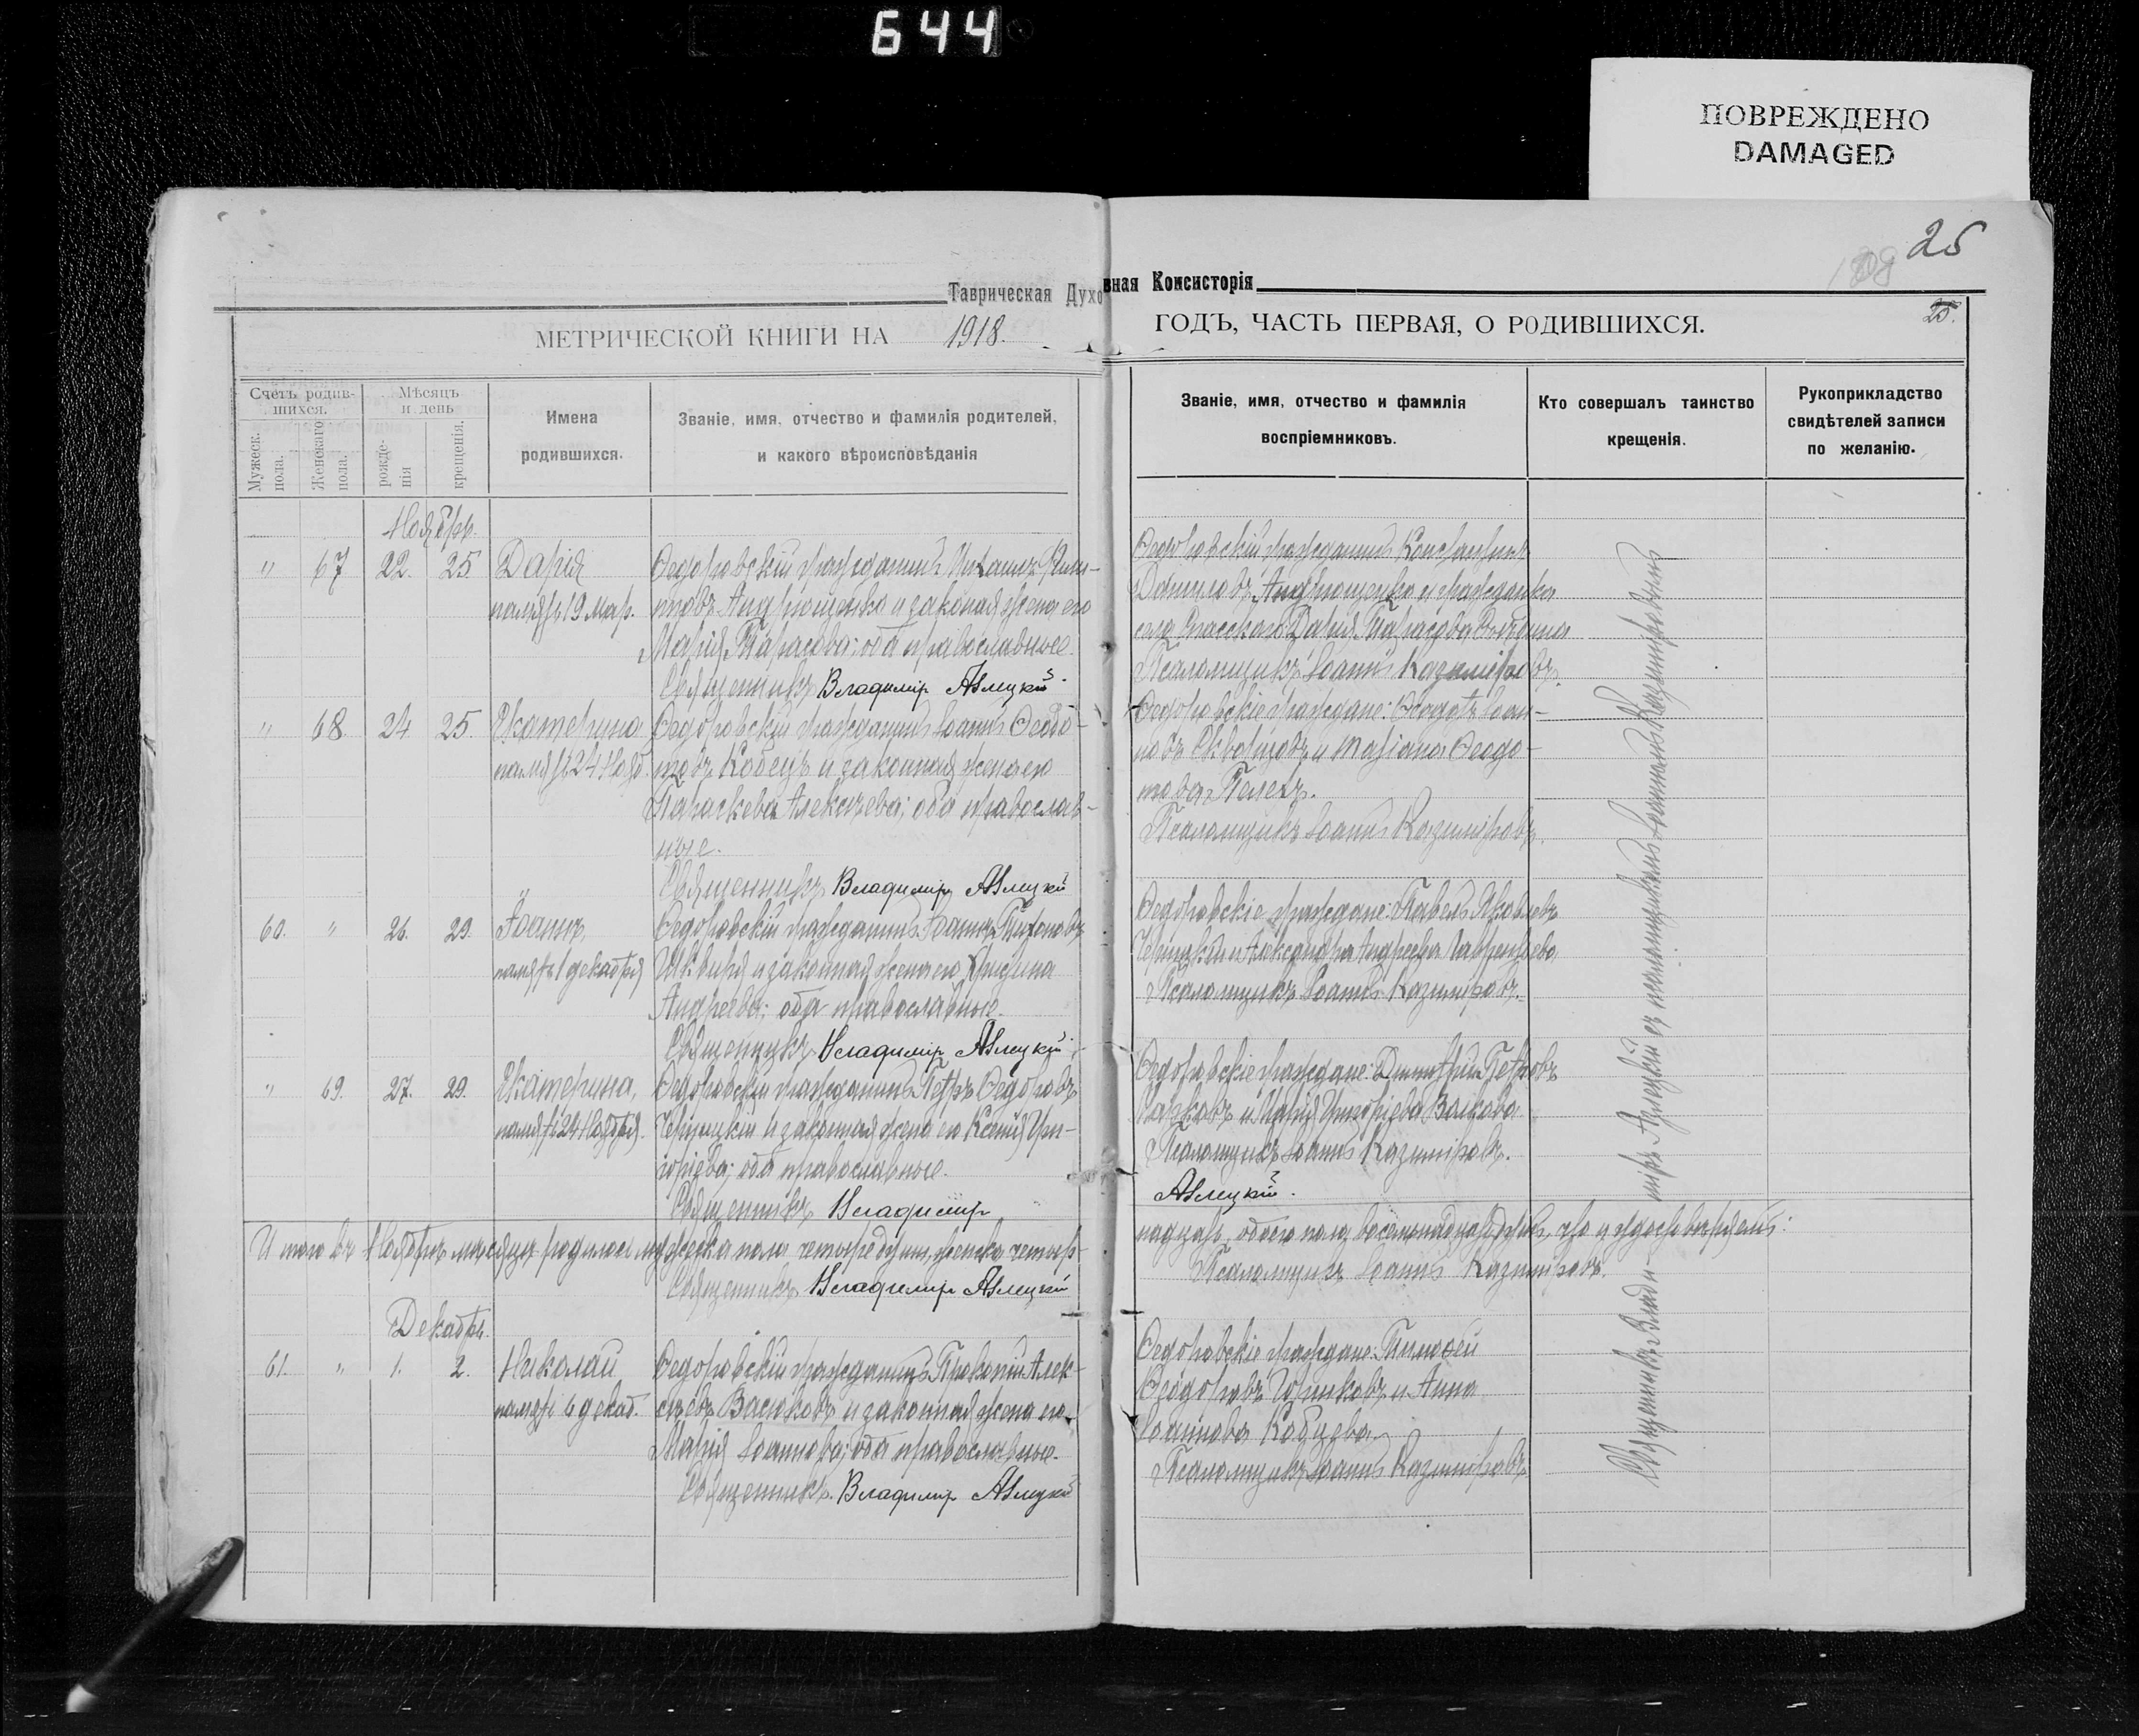 644
ПОВРЕЖДЕНО
DAMAGED
25
Таврическая Духовная Консисторія
МЕТРИЧЕСКОЙ КНИГИ НА 1918. ГОДЪ, ЧАСТЬ ПЕРВАЯ, О РОДИВШИХСЯ.
25.
Счетъ родив-
шихся.
Мужеск. пола.
Женскаго пола.
Мѣсяцъ
и день
рожде-
нія
крещенія.
Имена
родившихся.
Званіе, имя, отчество и фамилія родителей,
и какого вѣроисповѣданія
Званіе, имя, отчество и фамилія
воспріемниковъ.
Кто совершалъ таинство
крещенія.
Рукоприкладство
свидѣтелей записи
по желанію.
Ноябрь.
" 67 22. 25. Дарія
память 19 мар.
Ѳедоровскій гражданинъ
Андрющенко и законая жена его
Марія Тарасова; оба православные.
Священникъ Владимір Аблецкій.
Ѳедоровскій гражданинъ Константинъ
Даниловъ Андрющенко и гражданка
села Спасскаго Дарія Тарасова
Псаломщикъ Іоаннъ Казиміровъ.
" 68. 24. 25. Екатерина
память 24 Нояб.
Ѳедоровскій гражданинъ Іоаннъ Ѳедо-
товъ Кобецъ и законная жена его
Параскева Алексѣева; оба православ-
ные.
Священникъ Владимір Аблецкій
Ѳедоровскіе граждане: Ѳеодотъ Іоан-
новъ Скворцовъ и Маріана Ѳеодо-
това Пелехъ.
Псаломщикъ Іоаннъ Казиміровъ.
60. " 26. 29. Іоаннъ,
память 1 декабря
Ѳедоровскій гражданинъ Іоаннъ Тихоновъ
Шквиря и законная жена его Христина
Андреева; оба православные.
Священникъ Владимір Аблецкій
Ѳедоровскіе граждане: Павелъ Яковлевъ
и Александра Андреева
Псаломщикъ Іоаннъ Казиміровъ.
" 69. 27. 29. Екатерина,
память 24 Ноября.
Ѳедоровскій гражданинъ Петръ Ѳедоровъ
и законная жена его Ксенія Гри-
горіева; оба православные.
Священникъ Владимір
Ѳедоровскіе граждане: Димитрій Петровъ
и Марія Григоріева Волкова
Псаломщикъ Іоаннъ Казиміровъ.
Аблецкій.
Итого въ Ноябрѣ мѣсяцѣ родилось мужеска пола четыре души, женска четыр-
надцать, обоего пола восемнадцать душъ, что и удостовѣряемъ:
Священникъ Владимір Аблецкій
Псаломщикъ Іоаннъ Казиміровъ.
Декабрь.
61. " 1. 2. Николай
память 6 декаб.
Ѳедоровскій гражданинъ Прокопій Алек-
сѣевъ Васюковъ и законная жена его
Марія Іоаннова; оба православные.
Священникъ Владимір Аблецкій
Ѳедоровскіе граждане: Тимоѳей
Ѳеодоровъ и Анна
Іоаннова Кобцева.
Псаломщикъ Іоаннъ Казиміровъ
Священникъ Влади-
міръ Аблецкій съ псаломщикомъ Іоанномъ Казиміровымъ